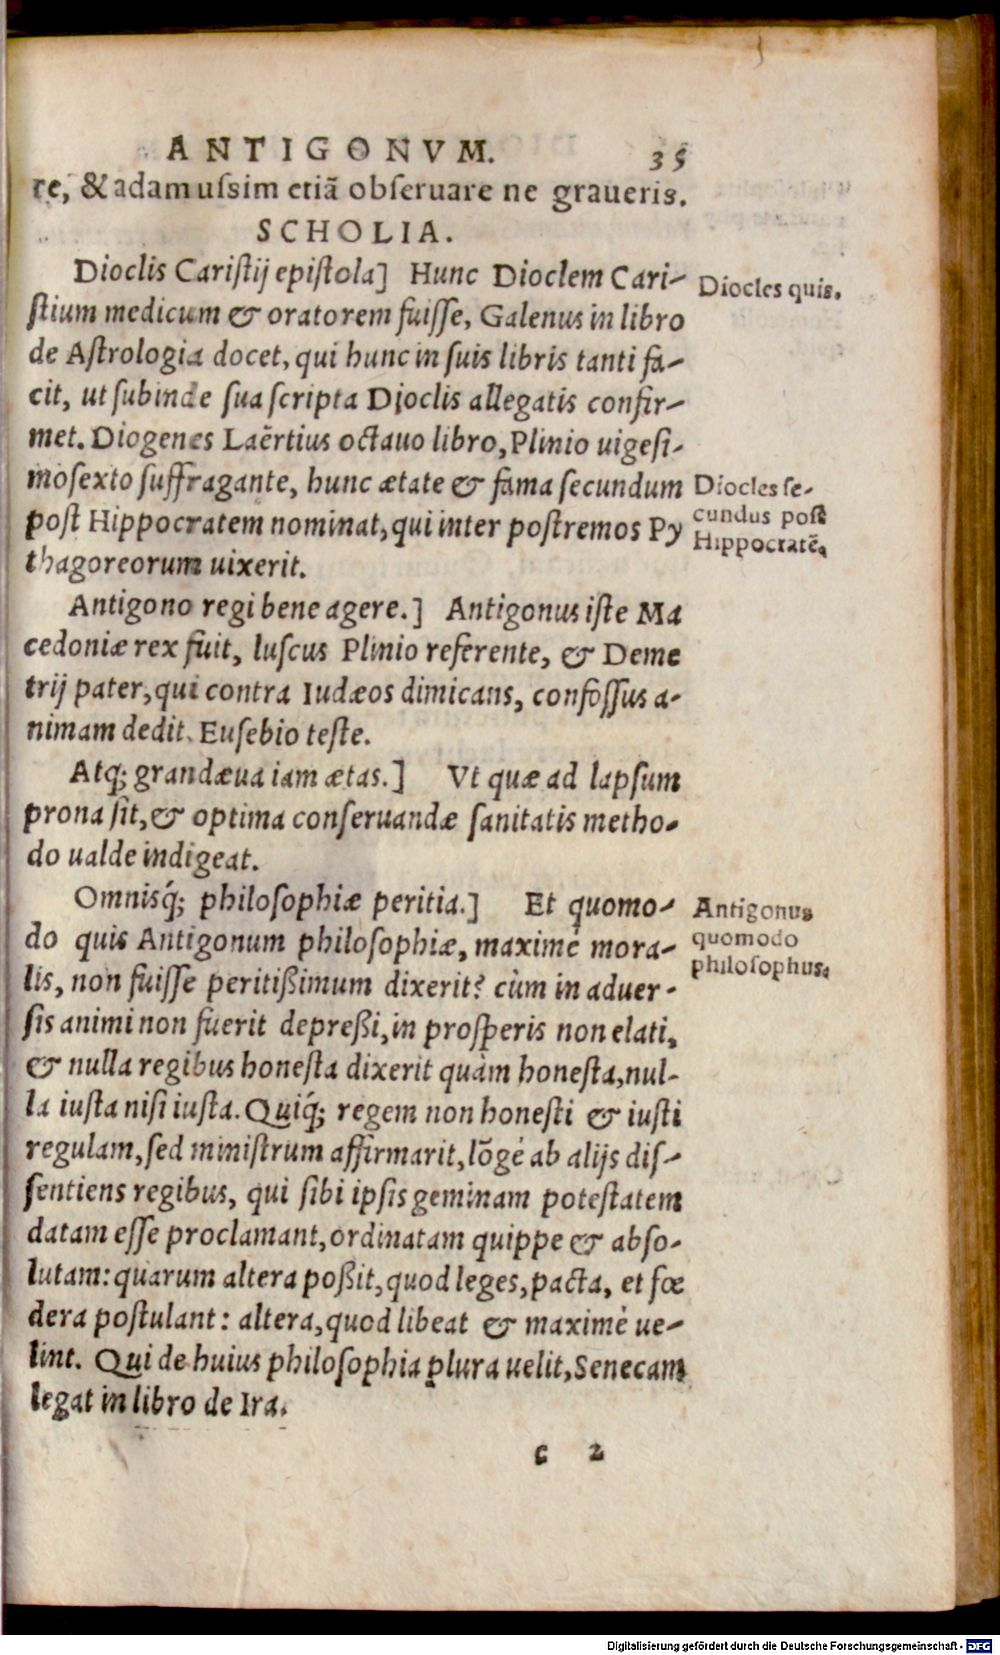 ANTIGONVM. 35
re, & adamussim etiã obseruare ne graueris.
SCHOLIA.
Dioclis Caristij epistola] Hunc Dioclem Cari-
stium medicum & oratorem fuisse, Galenus in libro
de Astrologia docet, qui hunc in suis libris tanti fa-
cit, ut subinde sua scripta Dioclis allegatis confir-
met. Diogenes Laërtius octauo libro, Plinio uigesi-
mosexto suffragante, hunc ætate & fama secundum
post Hippocratem nominat, qui inter postremos Py
thagoreorum uixerit.
Diocles quis.
Diocles se-
cundus post
Hippocratẽ.
Antigono regi bene agere.] Antigonus iste Ma
cedoniæ rex fuit, luscus Plinio referente, & Deme
trij pater, qui contra Iudæos dimicans, confossus a-
nimam dedit. Eusebio teste.
Atq; grandæua iam ætas.] Vt quæ ad lapsum
prona sit, & optima conseruandæ sanitatis metho-
do ualde indigeat.
Omnisq́; philosophiæ peritia.] Et quomo-
do quis Antigonum philosophiæ, maximè mora-
lis, non fuisse peritißimum dixerit? cùm in aduer-
sis animi non fuerit depreßi, in prosperis non elati,
& nulla regibus honesta dixerit quàm honesta, nul-
la iusta nisi iusta. Quiq́; regem non honesti & iusti
regulam, sed ministrum affirmarit, lõgè ab alijs dis-
sentiens regibus, qui sibi ipsis geminam potestatem
datam esse proclamant, ordinatam quippe & abso-
lutam: quarum altera poßit, quod leges, pacta, et fœ
dera postulant: altera, quod libeat & maximè ue-
lint. Qui de huius philosophia plura uelit, Senecam
legat in libro de Ira.
Antigonus
quomodo
philosophus.
c 2
Digitalisierung gefördert durch die Deutsche Forschungsgemeinschaft - DFG